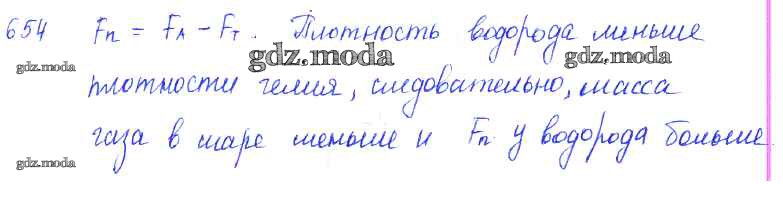 654 Fп = FА - FТ. Плотность водорода меньше
gdz.moda gdz.moda gdz.moda
плотности гелия, следовательно, масса
газа в шаре меньше и Fп у водорода больше.
gdz.moda